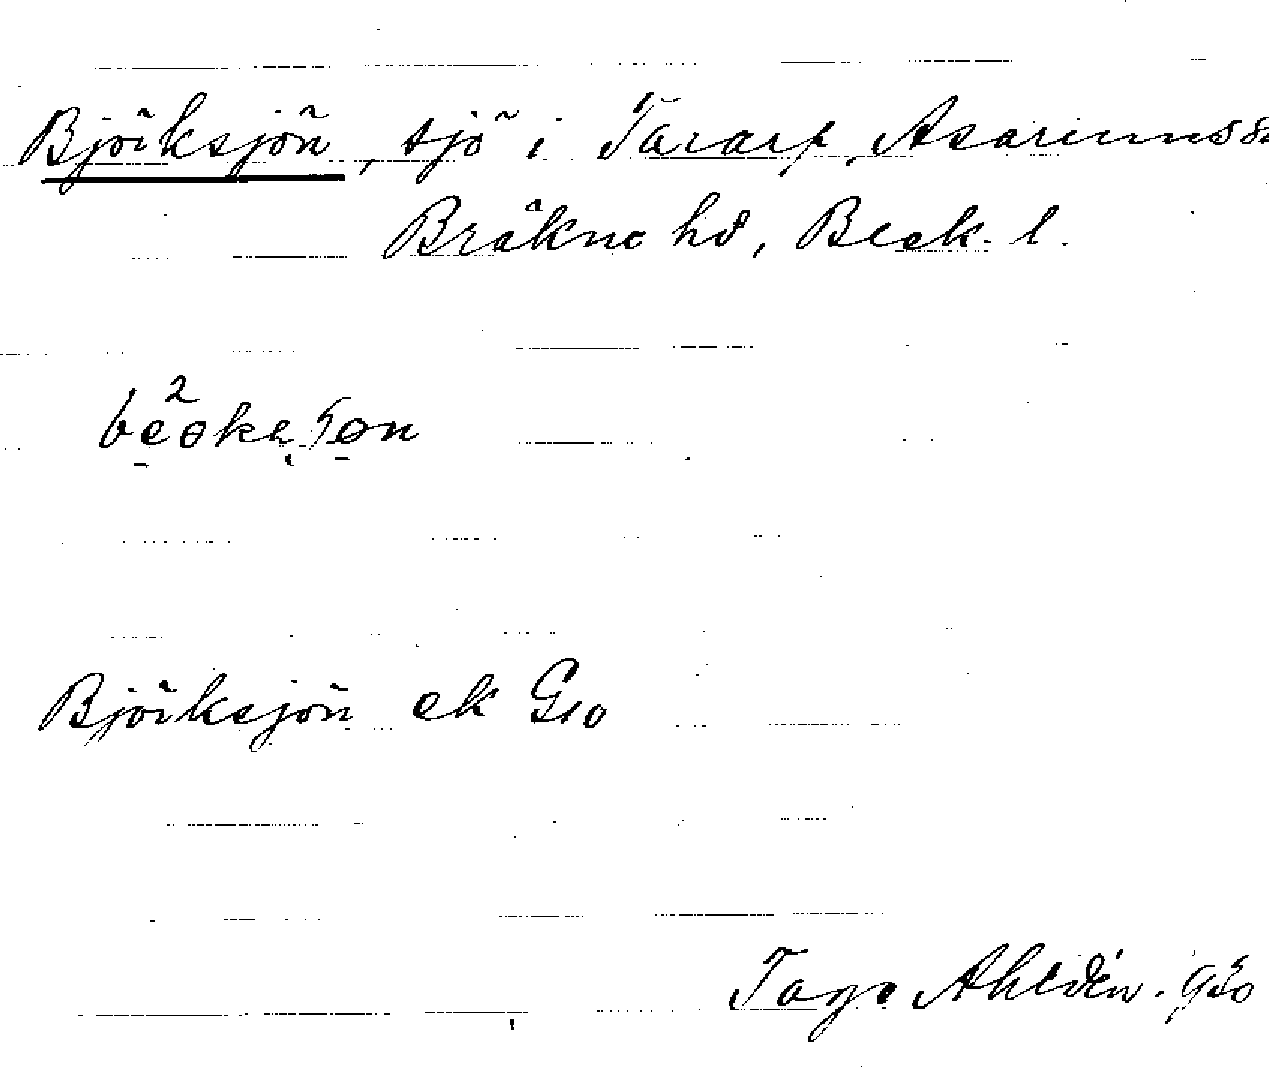 Björksjön, sjö i Tararp, Asarums sn
Bräkne hd, Blek. l.
Björksjön ek G10
Tage Ahldén. 930